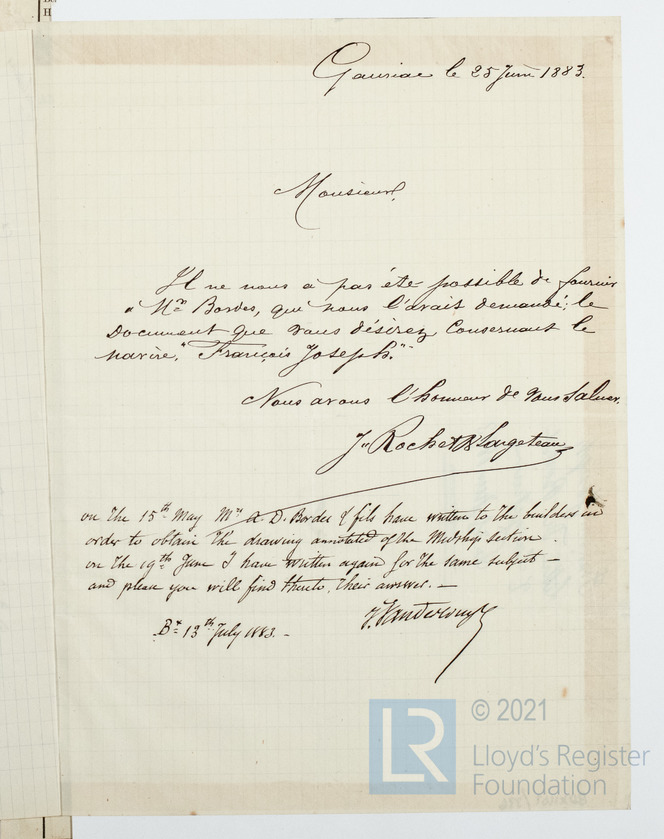 Gauriac le 25 Juin 1883.
Monsieur,
Il ne nous a pas été possible de fournir
à Mrs Bordes, qui nous l'avait demandé, le
Document que vous désirez Consernant le
navire, "François Joseph."
Nous avons l'honneur de vous Saluer.
Jn Rochet & Largeteau
on the 15th May Mrs A. D. Bordes & fils have written to the builders in
order to obtain the drawing annotated of the Midship section.
on the 19th June I have written again for the same subject -
and please you will find thereto, their answer. -
Bx 13th July 1883. -
© 2021
LR
Lloyd's Register
Foundation